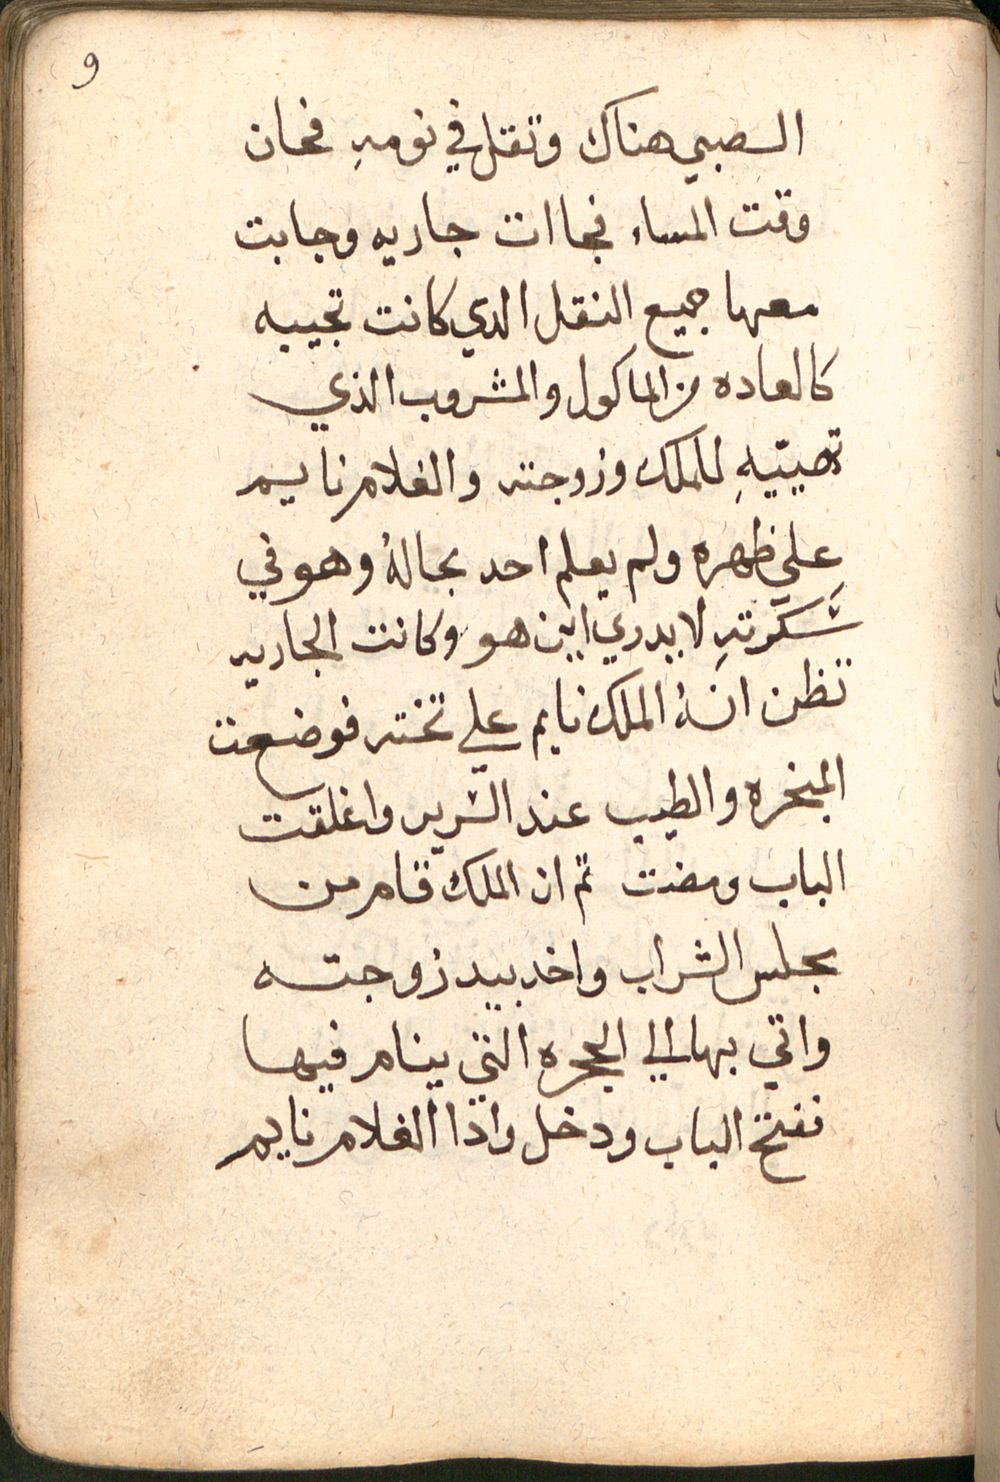 9
الصبي هناك وتقل في نومهِ فحان
وقت المساء فجاات جاريه وجابت
معها جميع النقل الدي كانت تجيبه
كالعاده من الماكول والمشروب الذي
تهيّيهِ للملك وزوجته والغلام نايم
علي ظهره ولم يعلم احد بحالهُ وهو في
سَكَرتهِ لا يدري اين هو وكانت الجاريه
تظن انهُ الملك نايم علي تخته فوضعت
المبخره والطيب عند السرير واغلقت
الباب ومضت ثم ان الملك قام من
مجلس الشراب واخد بيد زوجته
واتي بها الي الحجره التي ينام فيها
ففتح الباب ودخل واذا الغلام نايم